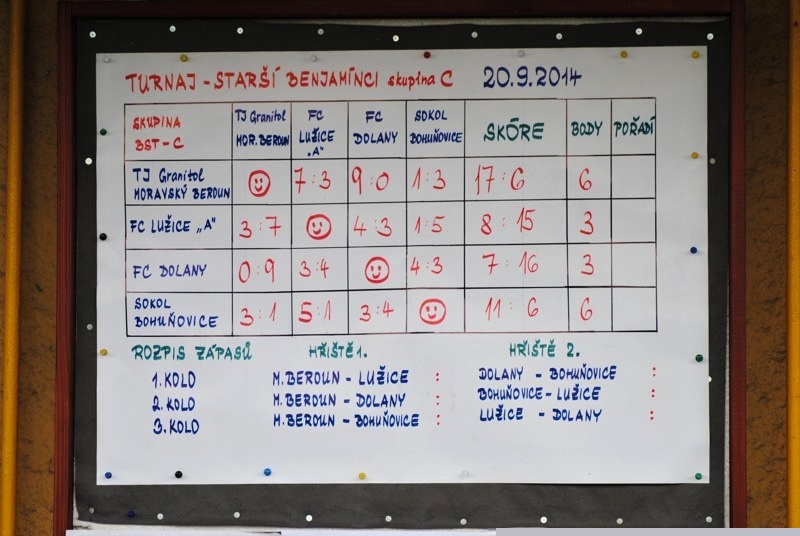 TURNAJ - STARŠÍ BENJAMÍNCI skupina C 20.9.2014
SKUPINA BST-C | TJ Granitol MOR. BEROUN | FC LUŽICE „A" | FC DOLANY | SOKOL BOHUŇOVICE | SKÓRE | BODY | POŘADÍ
TJ Granitol MORAVSKÝ BEROUN | 7:3 | 9:0 | 1:3 | 17:6 | 6
FC LUŽICE „A" | 3:7 | 4:3 | 1:5 | 8:15 | 3
FC DOLANY | 0:9 | 3:4 | 4:3 | 7:16 | 3
SOKOL BOHUŇOVICE | 3:1 | 5:1 | 3:4 | 11:6 | 6
ROZPIS ZÁPASŮ HŘIŠTĚ 1. HŘIŠTĚ 2.
1. KOLO M.BEROUN - LUŽICE : DOLANY - BOHUŇOVICE :
2. KOLO M.BEROUN - DOLANY : BOHUŇOVICE - LUŽICE :
3. KOLO M.BEROUN - BOHUŇOVICE : LUŽICE - DOLANY :